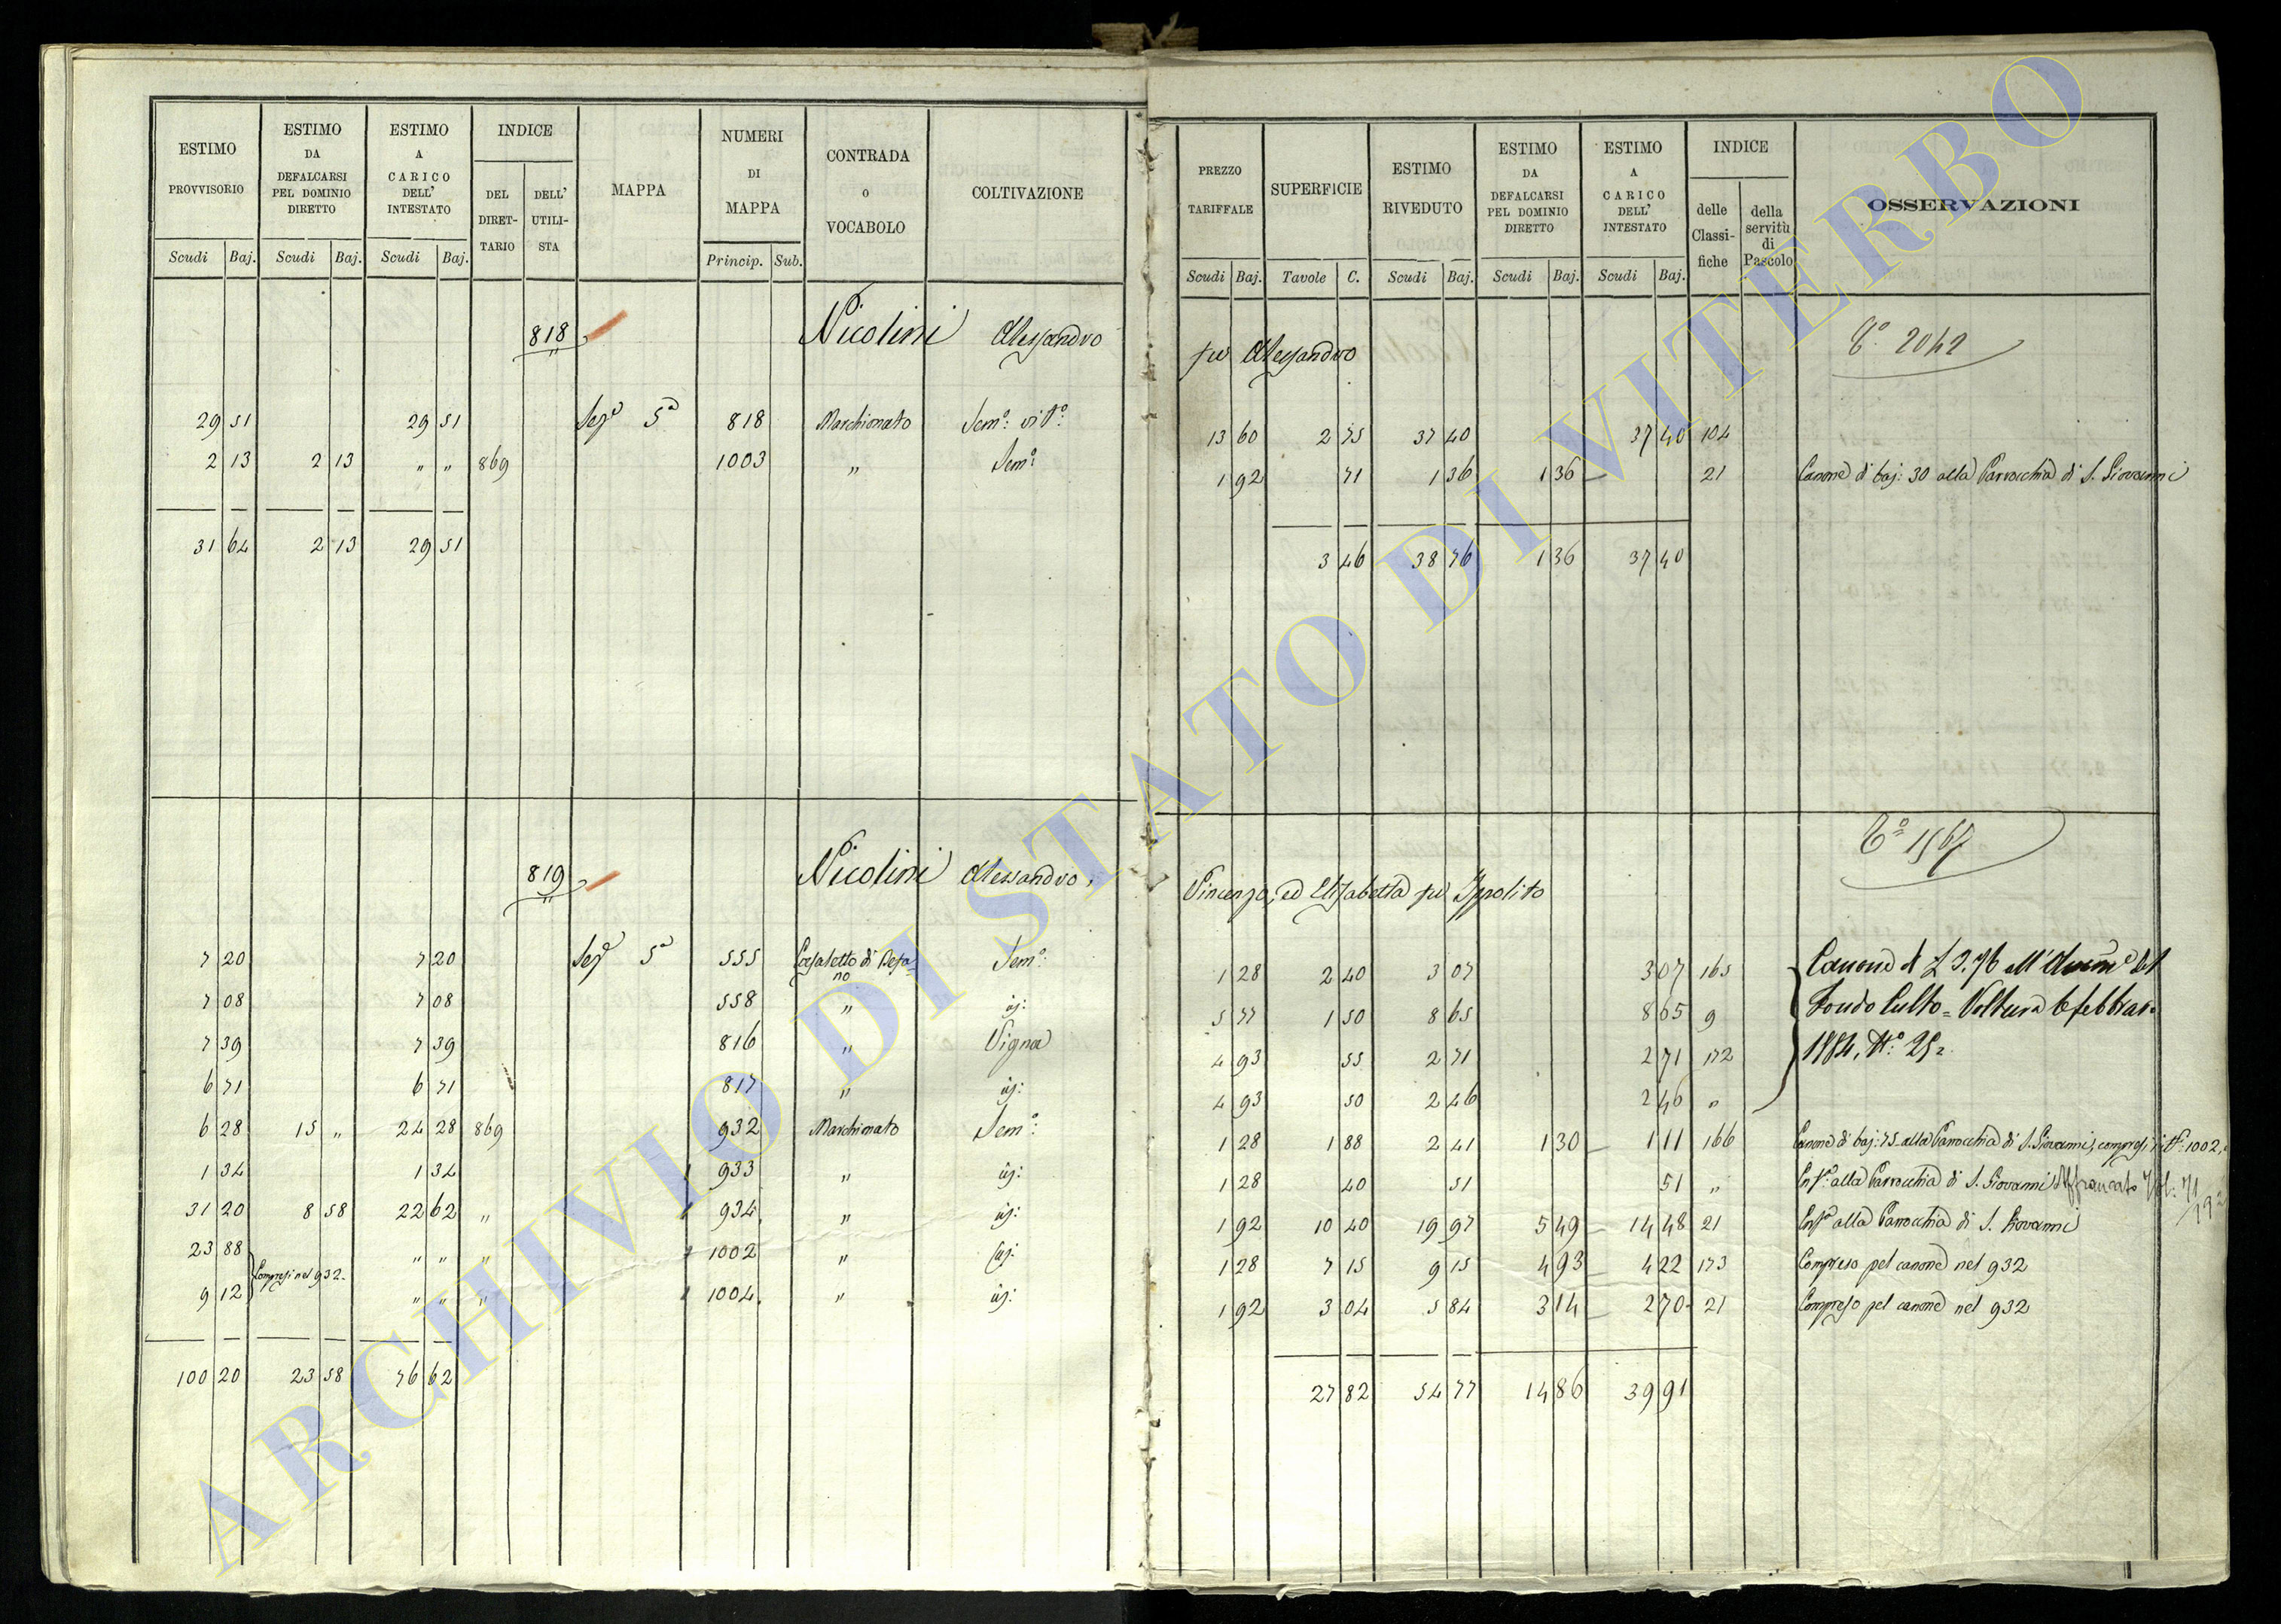 ESTIMO PROVVISORIO | ESTIMO DA DEFALCARSI PEL DOMINIO DIRETTO | ESTIMO A CARICO DELL' INTESTATO | INDICE | MAPPA | NUMERI DI MAPPA | CONTRADA o VOCABOLO | COLTIVAZIONE
DEL DIRET-TARIO | DELL' UTILI-STA
Scudi | Baj. | Scudi | Baj. | Scudi | Baj. | Princip. | Sub.
818 Nicolini Alessandro
29 51 | 29 51 | Sezᵉ 5ª | 818 | Marchionato | Semº: vitº:
2 13 | 2 13 | " " | 869 | 1003 | " | Semº:
31 64 | 2 13 | 29 51
819 Nicolini Alessandro,
7 20 | 7 20 | Sezᵉ 5ª | 555 | Casaletto di | Semº:
7 08 | 7 08 | 558 | " | id:
7 39 | 7 39 | 816 | " | Vigna
6 71 | 6 71 | 817 | " | id:
6 28 | 15 " | 24 28 | 869 | 932 | Marchionato | Semº:
1 34 | 1 34 | 933 | " | id:
31 20 | 8 58 | 22 62 | " | 934 | " | id:
23 88 | " " | " | 1002 | " | id:
Compresi nel 932
9 12 | " " | " | 1004 | " | id:
100 20 | 23 58 | 76 62
PREZZO TARIFFALE | SUPERFICIE | ESTIMO RIVEDUTO | ESTIMO DA DEFALCARSI PEL DOMINIO DIRETTO | ESTIMO A CARICO DELL' INTESTATO | INDICE | OSSERVAZIONI
delle Classi-fiche | della servitù di Pascolo
Scudi | Baj. | Tavole | C. | Scudi | Baj. | Scudi | Baj. | Scudi | Baj.
fu Alessandro | 2042
13 60 | 2 75 | 37 40 | 37 40 | 104
1 92 | 71 | 1 36 | 1 36 | 21 | Canone di baj: 30 alla Parrocchia di S. Giovanni
3 46 | 38 76 | 1 36 | 37 40
Vincenzo, ed Elisabetta fu Ippolito
1 28 | 2 40 | 3 07 | 3 07 | 165 | Canone di £ 3.76 all' del
5 77 | 1 50 | 8 65 | 8 65 | 9 | Fondo Culto = Voltura 6 febbraio
4 93 | 55 | 2 71 | 2 71 | 172 | 1884, Nº: 25
4 93 | 50 | 2 46 | 2 46 | "
1 28 | 1 88 | 2 41 | 1 30 | 1 11 | 166 | Canone di baj: 75 alla Parrocchia di S. Giovanni, compresi i Nº: 1002,
1 28 | 40 | 51 | 51 | " | Enfª: alla Parrocchia di S. Giovanni Affrancato
1 92 | 10 40 | 19 97 | 5 49 | 14 48 | 21 | Enfª alla Parrocchia di S. Giovanni
1 28 | 7 15 | 9 15 | 4 93 | 4 22 | 173 | Compreso pel canone nel 932
1 92 | 3 04 | 5 84 | 3 14 | 2 70 | 21 | Compreso pel canone nel 932
27 82 | 54 77 | 14 86 | 39 91
ARCHIVIO DI STATO DI VITERBO